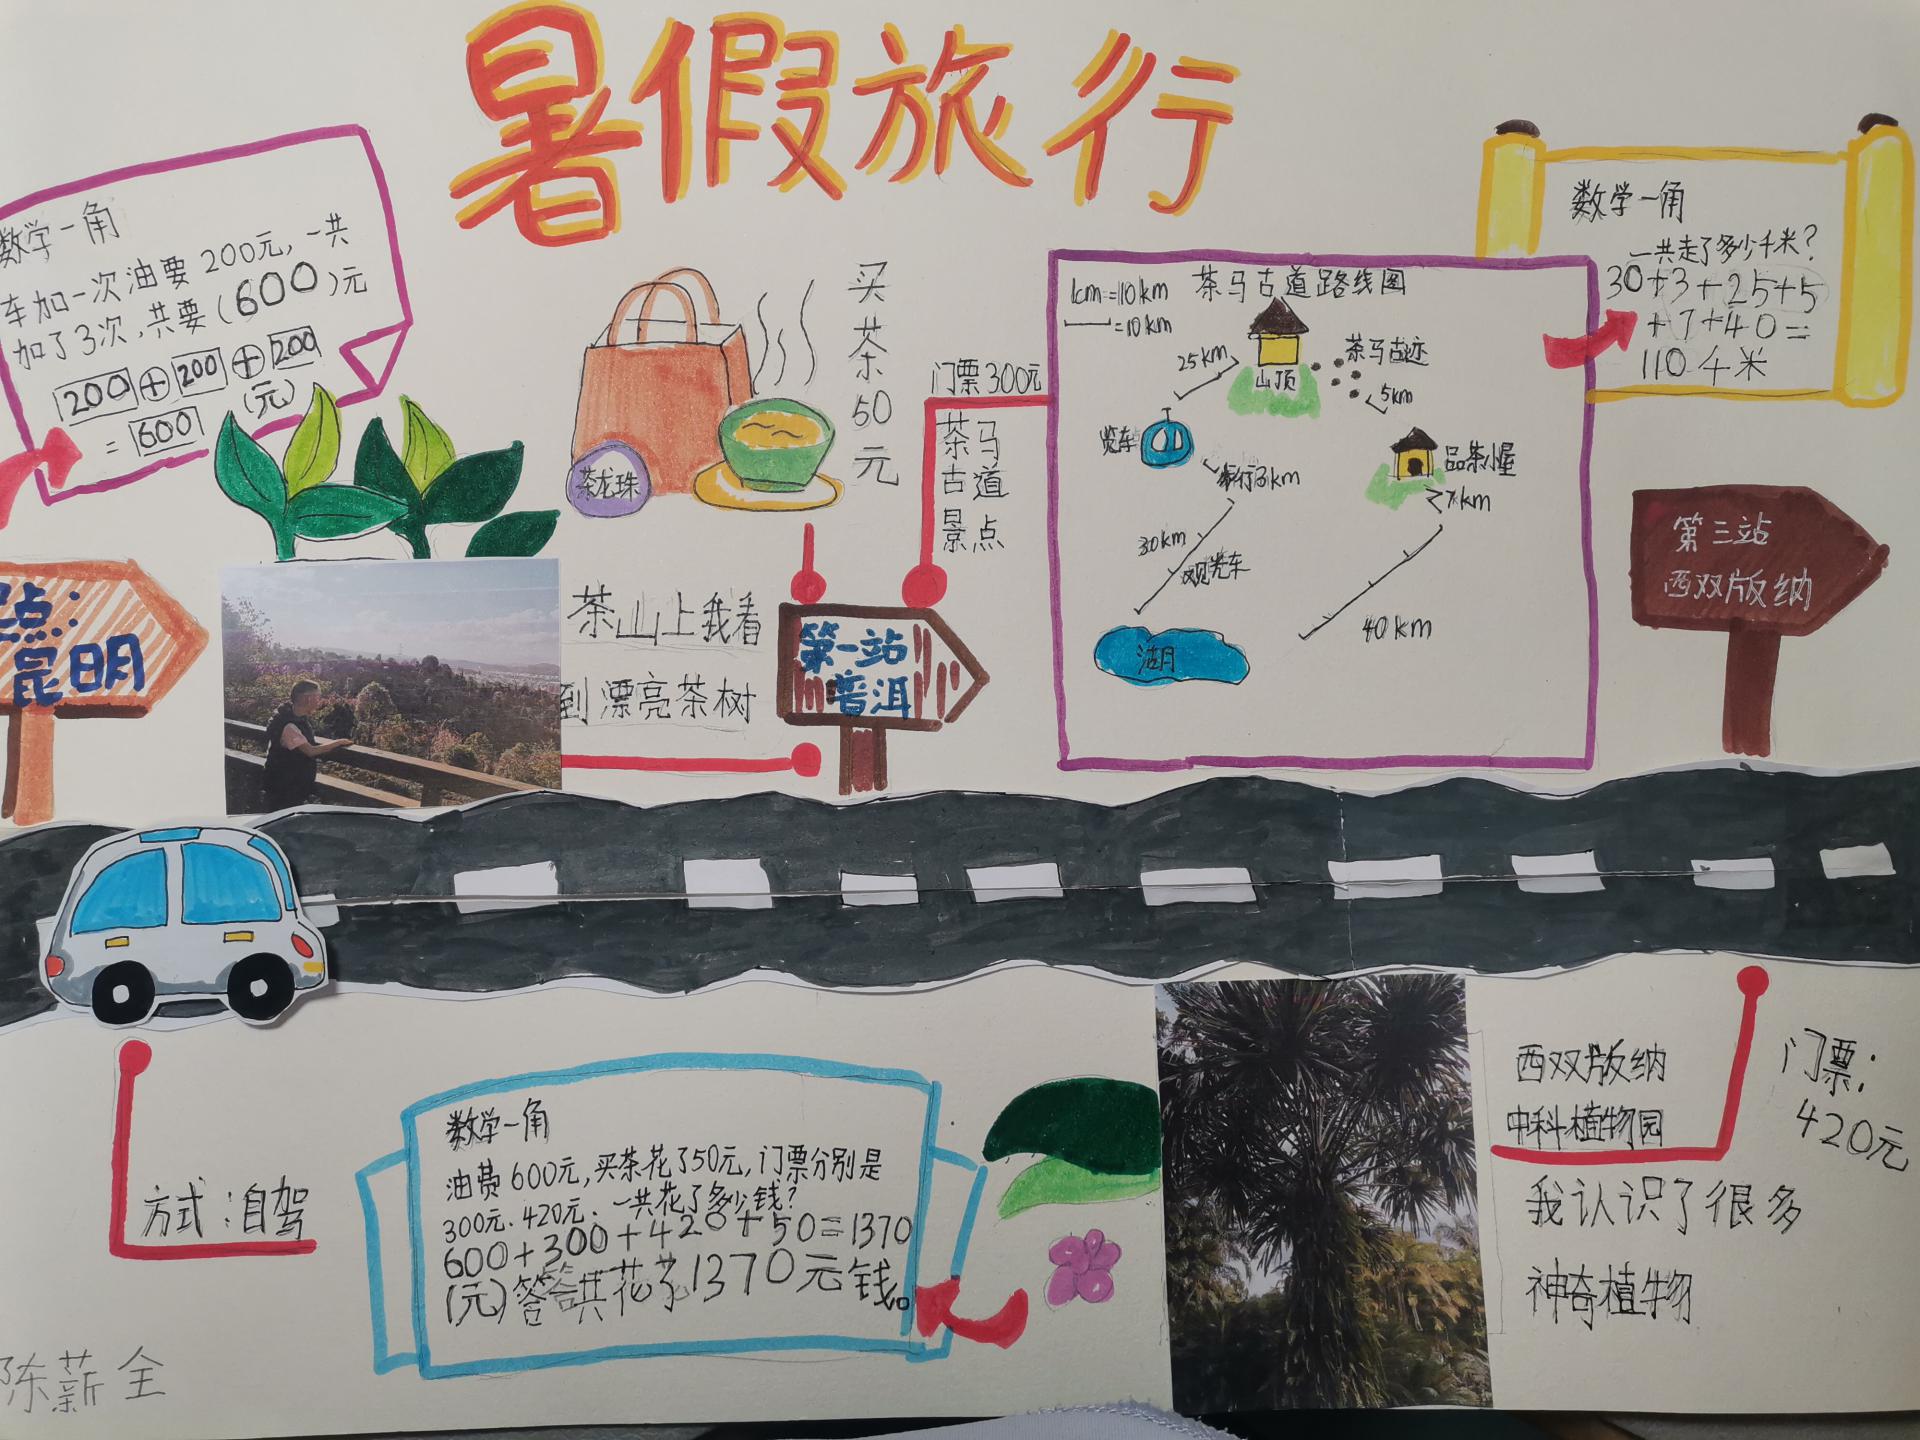 暑假旅行
数学一角
车加一次油要200元,一共
加了3次,共要(600)元
200+200+200
=600(元)
茶龙珠
买茶50元
门票300元
茶马
古道
景点
1cm=110km
=10km
茶马古道路线图
25km
山顶
茶马古迹
5km
览车
步行3km
品茶小屋
7km
30km
观光车
40km
湖
数学一角
一共走了多少千米?
30+3+25+5
+7+40=
110千米
点:
昆明
茶山上我看
到漂亮茶树
第一站
普洱
第三站
西双版纳
方式:自驾
数学一角
油费600元,买茶花了50元,门票分别是
300元、420元、一共花了多少钱?
600+300+420+50=1370
(元)答答共花了1370元钱。
西双版纳
中科植物园
门票:
420元
我认识了很多
神奇植物
陈薪全